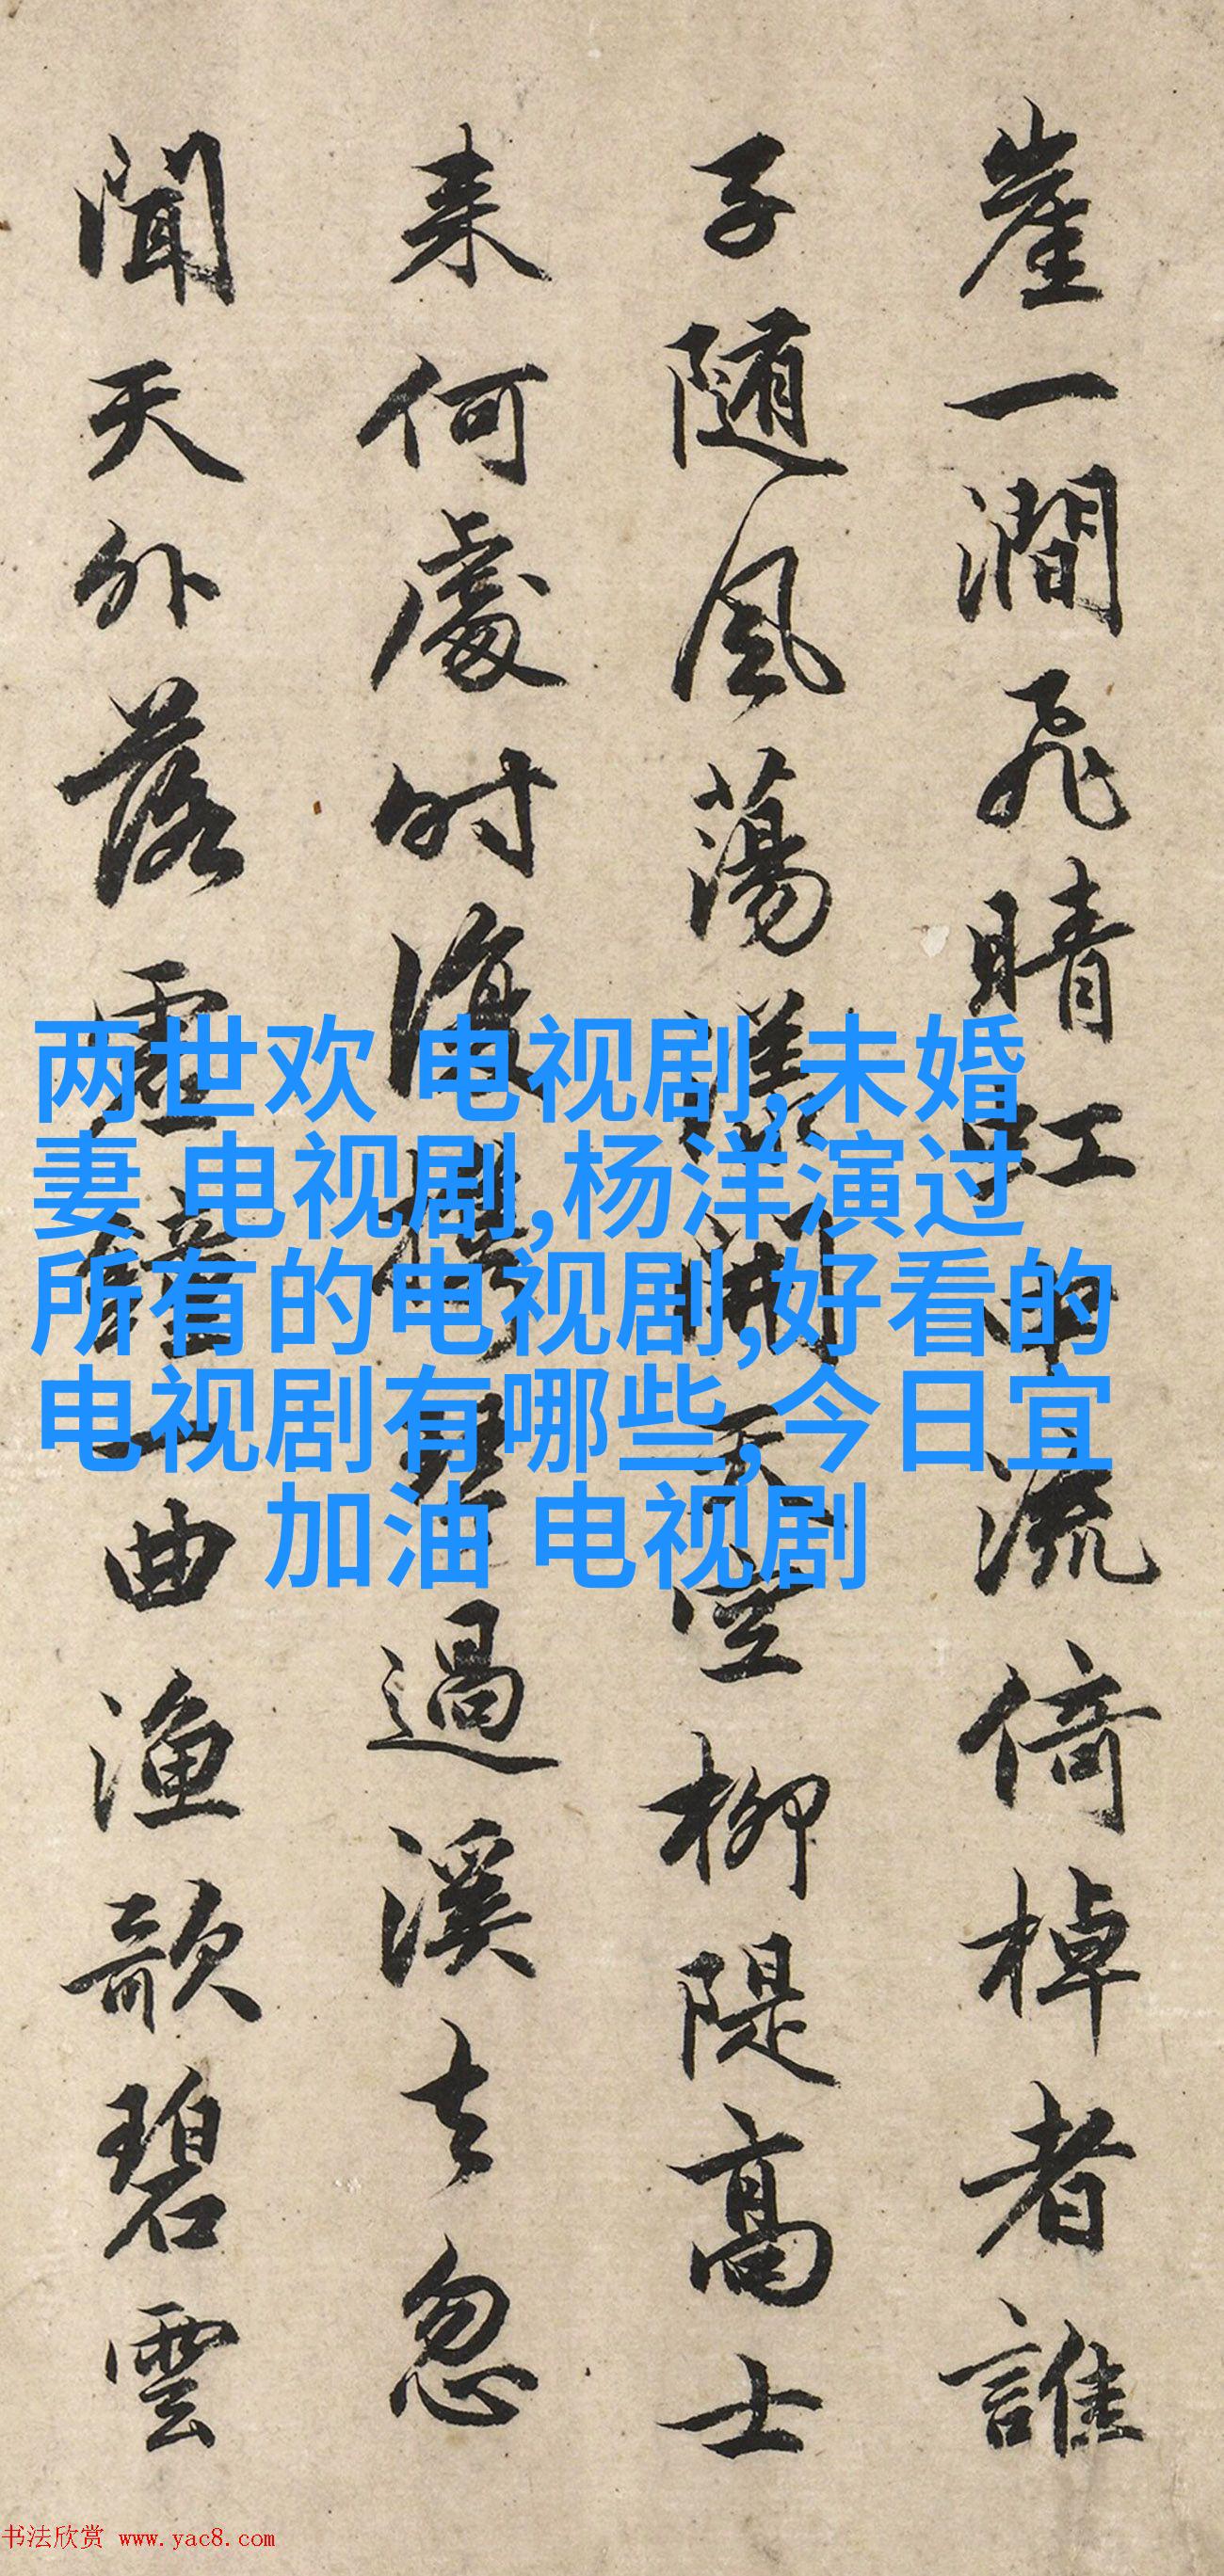 崖一澗飛晴虹中流倚棹者誰
子随風蕩漾開天空柳隄高士
来何處时復攜琴過溪去忽
聞天外落鐘一曲漁歌碧雲
两世欢 电视剧,未婚
妻 电视剧,杨洋演过
所有的电视剧,好看的
电视剧有哪些,今日宜
加油 电视剧
书法欣赏 www.yac8.com